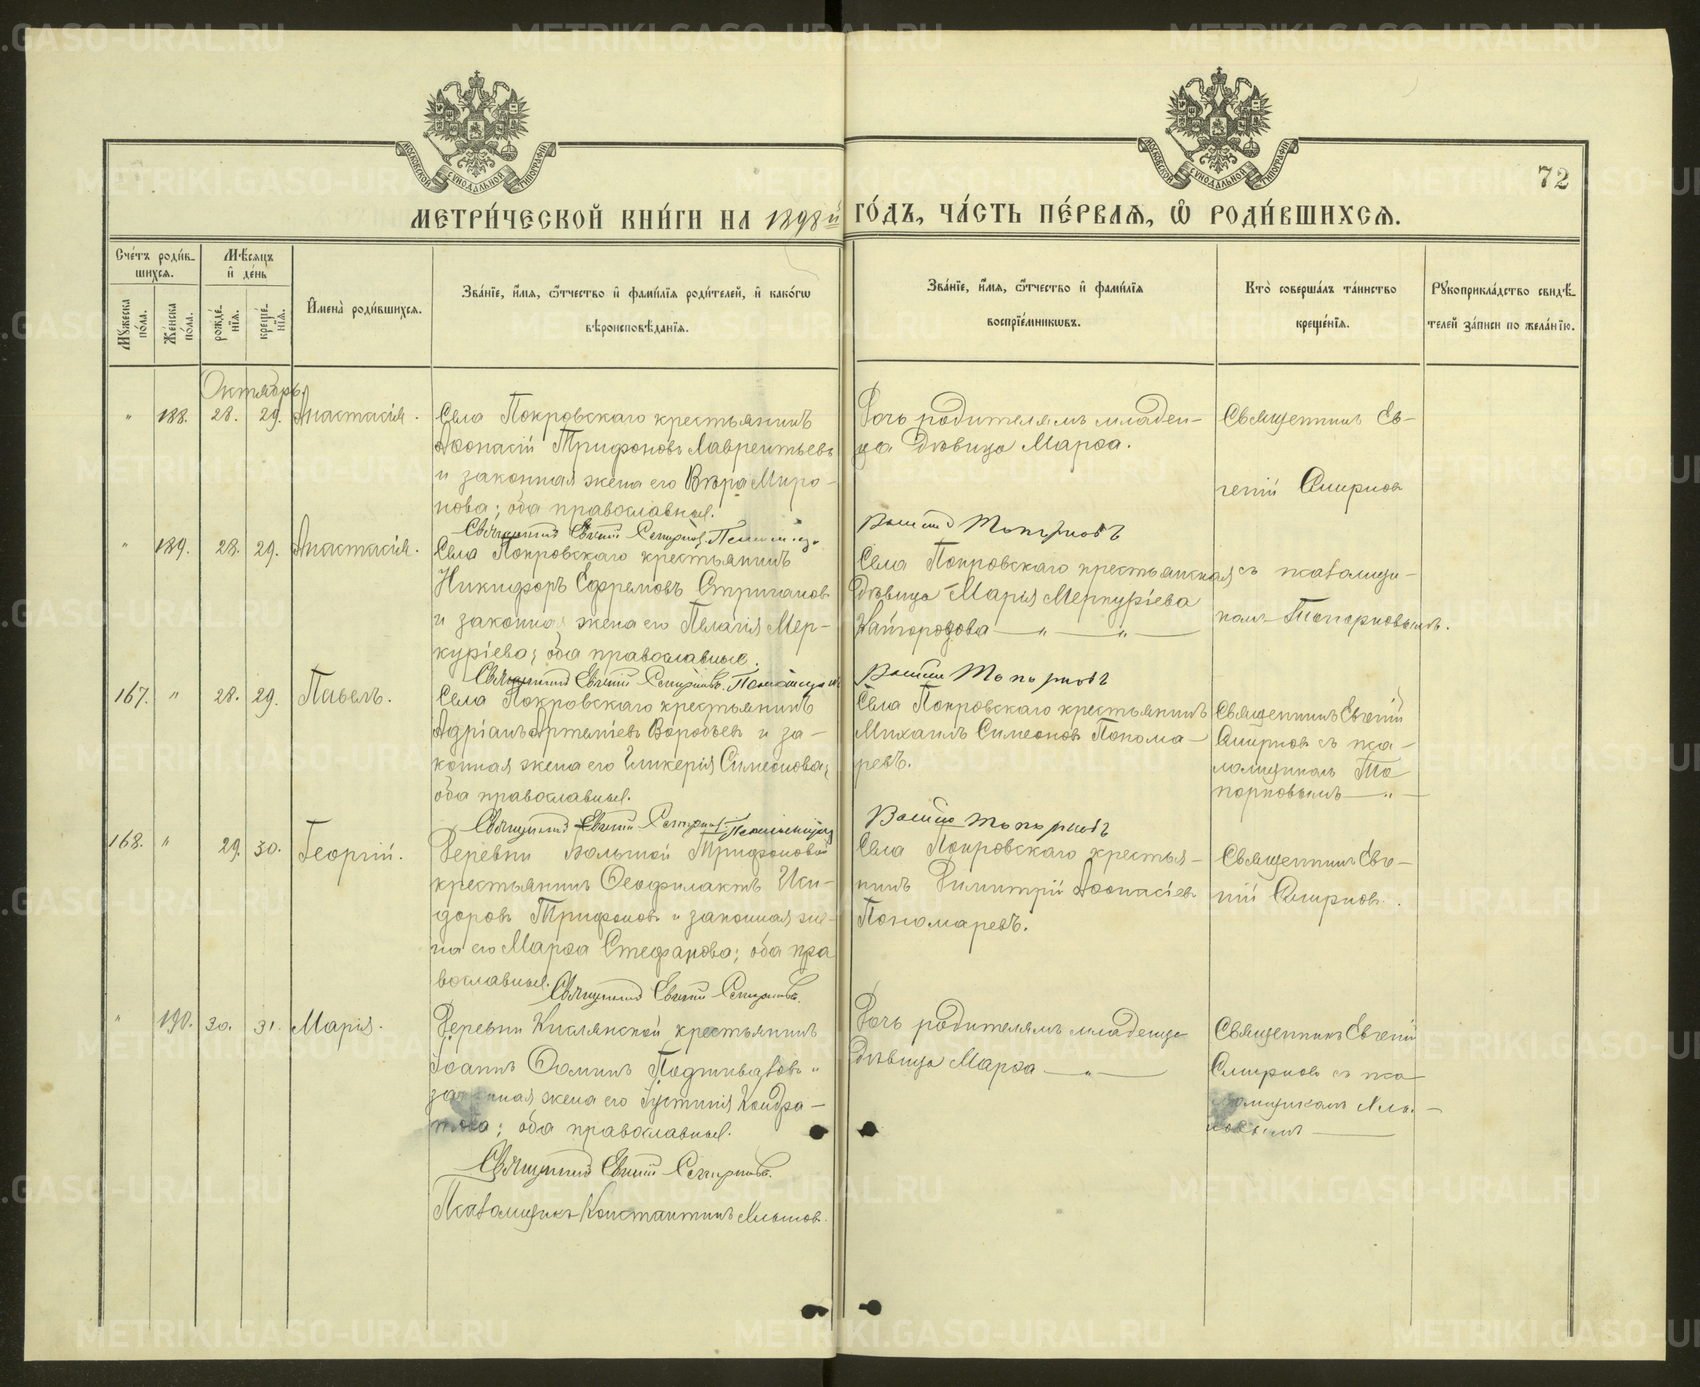 72
МЕТРИ́ЧЕСКОЙ КНИ́ГИ НА 1898й ГО́ДЪ, ЧА́СТЬ ПЕ́РВАѦ, Ѡ РОДИ́ВШИХСѦ.
Сче́тъ роди́в-
шихсѧ.
Мѣ́сѧцъ
и́ де́нь
Мꙋжеска по́ла.
Же́нска по́ла.
рожде́нїѧ.
креще́нїѧ.
И҆мена̀ роди́вшихсѧ.
Зва́нїе, и҆́мѧ, ѻ҆́тчество и҆ фами́лїѧ роди́телей, и҆ како́гѡ
вѣроисповѣ́данїѧ.
Зва́нїе, и҆́мѧ, ѻ҆́тчество и҆ фами́лїѧ
воспрїе́мникѡвъ.
Кто̀ соверша́лъ та́инство
креще́нїѧ.
Рꙋкоприкла́дство свидѣ́-
телей за́писи по жела́нїю.
Октябрь
" 188. 28. 29. Анастасія.
Села Покровскаго крестьянинъ
Аѳонасій Трифоновъ Лаврентьевъ
и законная жена его Вѣра Миро-
нова; оба православные.
Священникъ Евгеній Смирновъ
Дочь родителямъ младен-
ца дѣвица Марѳа.
Священникъ Ев-
геній Смирновъ
" 189. 28. 29. Анастасія.
Села Покровскаго крестьянинъ
Никифоръ Ефремовъ Стригановъ
и законная жена его Пелагія Мер-
куріева; оба православные.
Священникъ Евгеній Смирновъ
Топорковъ
Села Покровскаго крестьянская
дѣвица Марія Меркуріева
Кайгородова — " — " —
съ псаломщи-
комъ Топорковымъ.
167. " 28. 29. Павелъ.
Села Покровскаго крестьянинъ
Адріанъ Артеміевъ Воробьевъ и за-
конная жена его Гликерія Симеонова;
оба православные.
Священникъ Евгеній Смирновъ
Топорковъ
Села Покровскаго крестьянинъ
Михаилъ Симеоновъ Понома-
ревъ.
Священникъ Евгеній
Смирновъ съ пса-
ломщикомъ То
порковымъ — " —
168. " 29. 30. Георгій.
Деревни Большой Трифоновой
крестьянинъ Ѳеофилактъ Иси-
доровъ Трифоновъ и законная же-
на его Марѳа Стефанова; оба пра
вославные.
Священникъ Евгеній Смирновъ.
Топорковъ
Села Покровскаго крестья-
нинъ Димитрій Аѳонасіевъ
Пономаревъ.
Священникъ Евге-
ній Смирновъ.
" 190. 30. 31. Марія.
Деревни Кислянской крестьянинъ
Іоаннъ Ѳоминъ Подшиваловъ и
законная жена его Іустинія Кондра-
това; оба православные.
Священникъ Евгеній Смирновъ.
Псаломщикъ Константинъ
Дочь родителямъ младенца
дѣвица Марѳа — " —
Священникъ Евгеній
Смирновъ съ пса-
ломщикомъ
METRIKI.GASO-URAL.RU